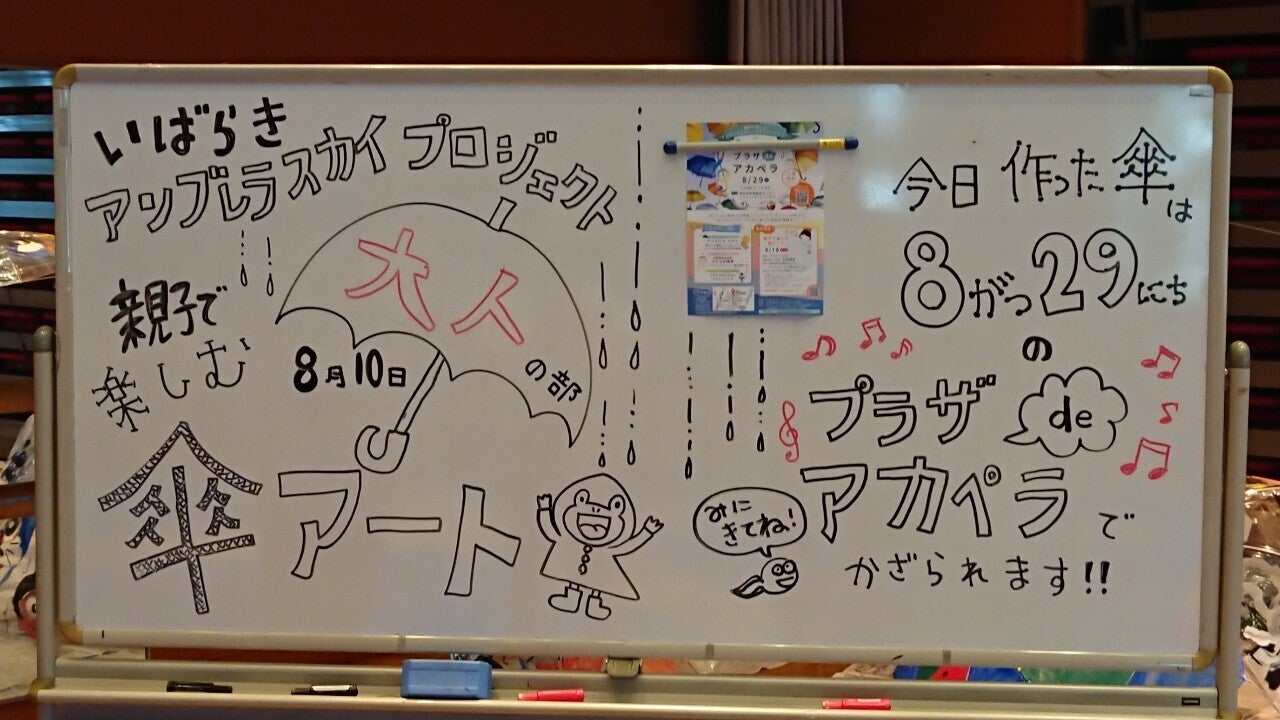 いばらき
アンブレラスカイ プロジェクト
親子で
楽しむ
大人
の部
8月10日
傘アート
プラザ de
アカペラ
8/29
8/10
今日 作った 傘は
8がつ29にち
の
プラザ de
アカペラで
かざられます!!
みに
きてね!